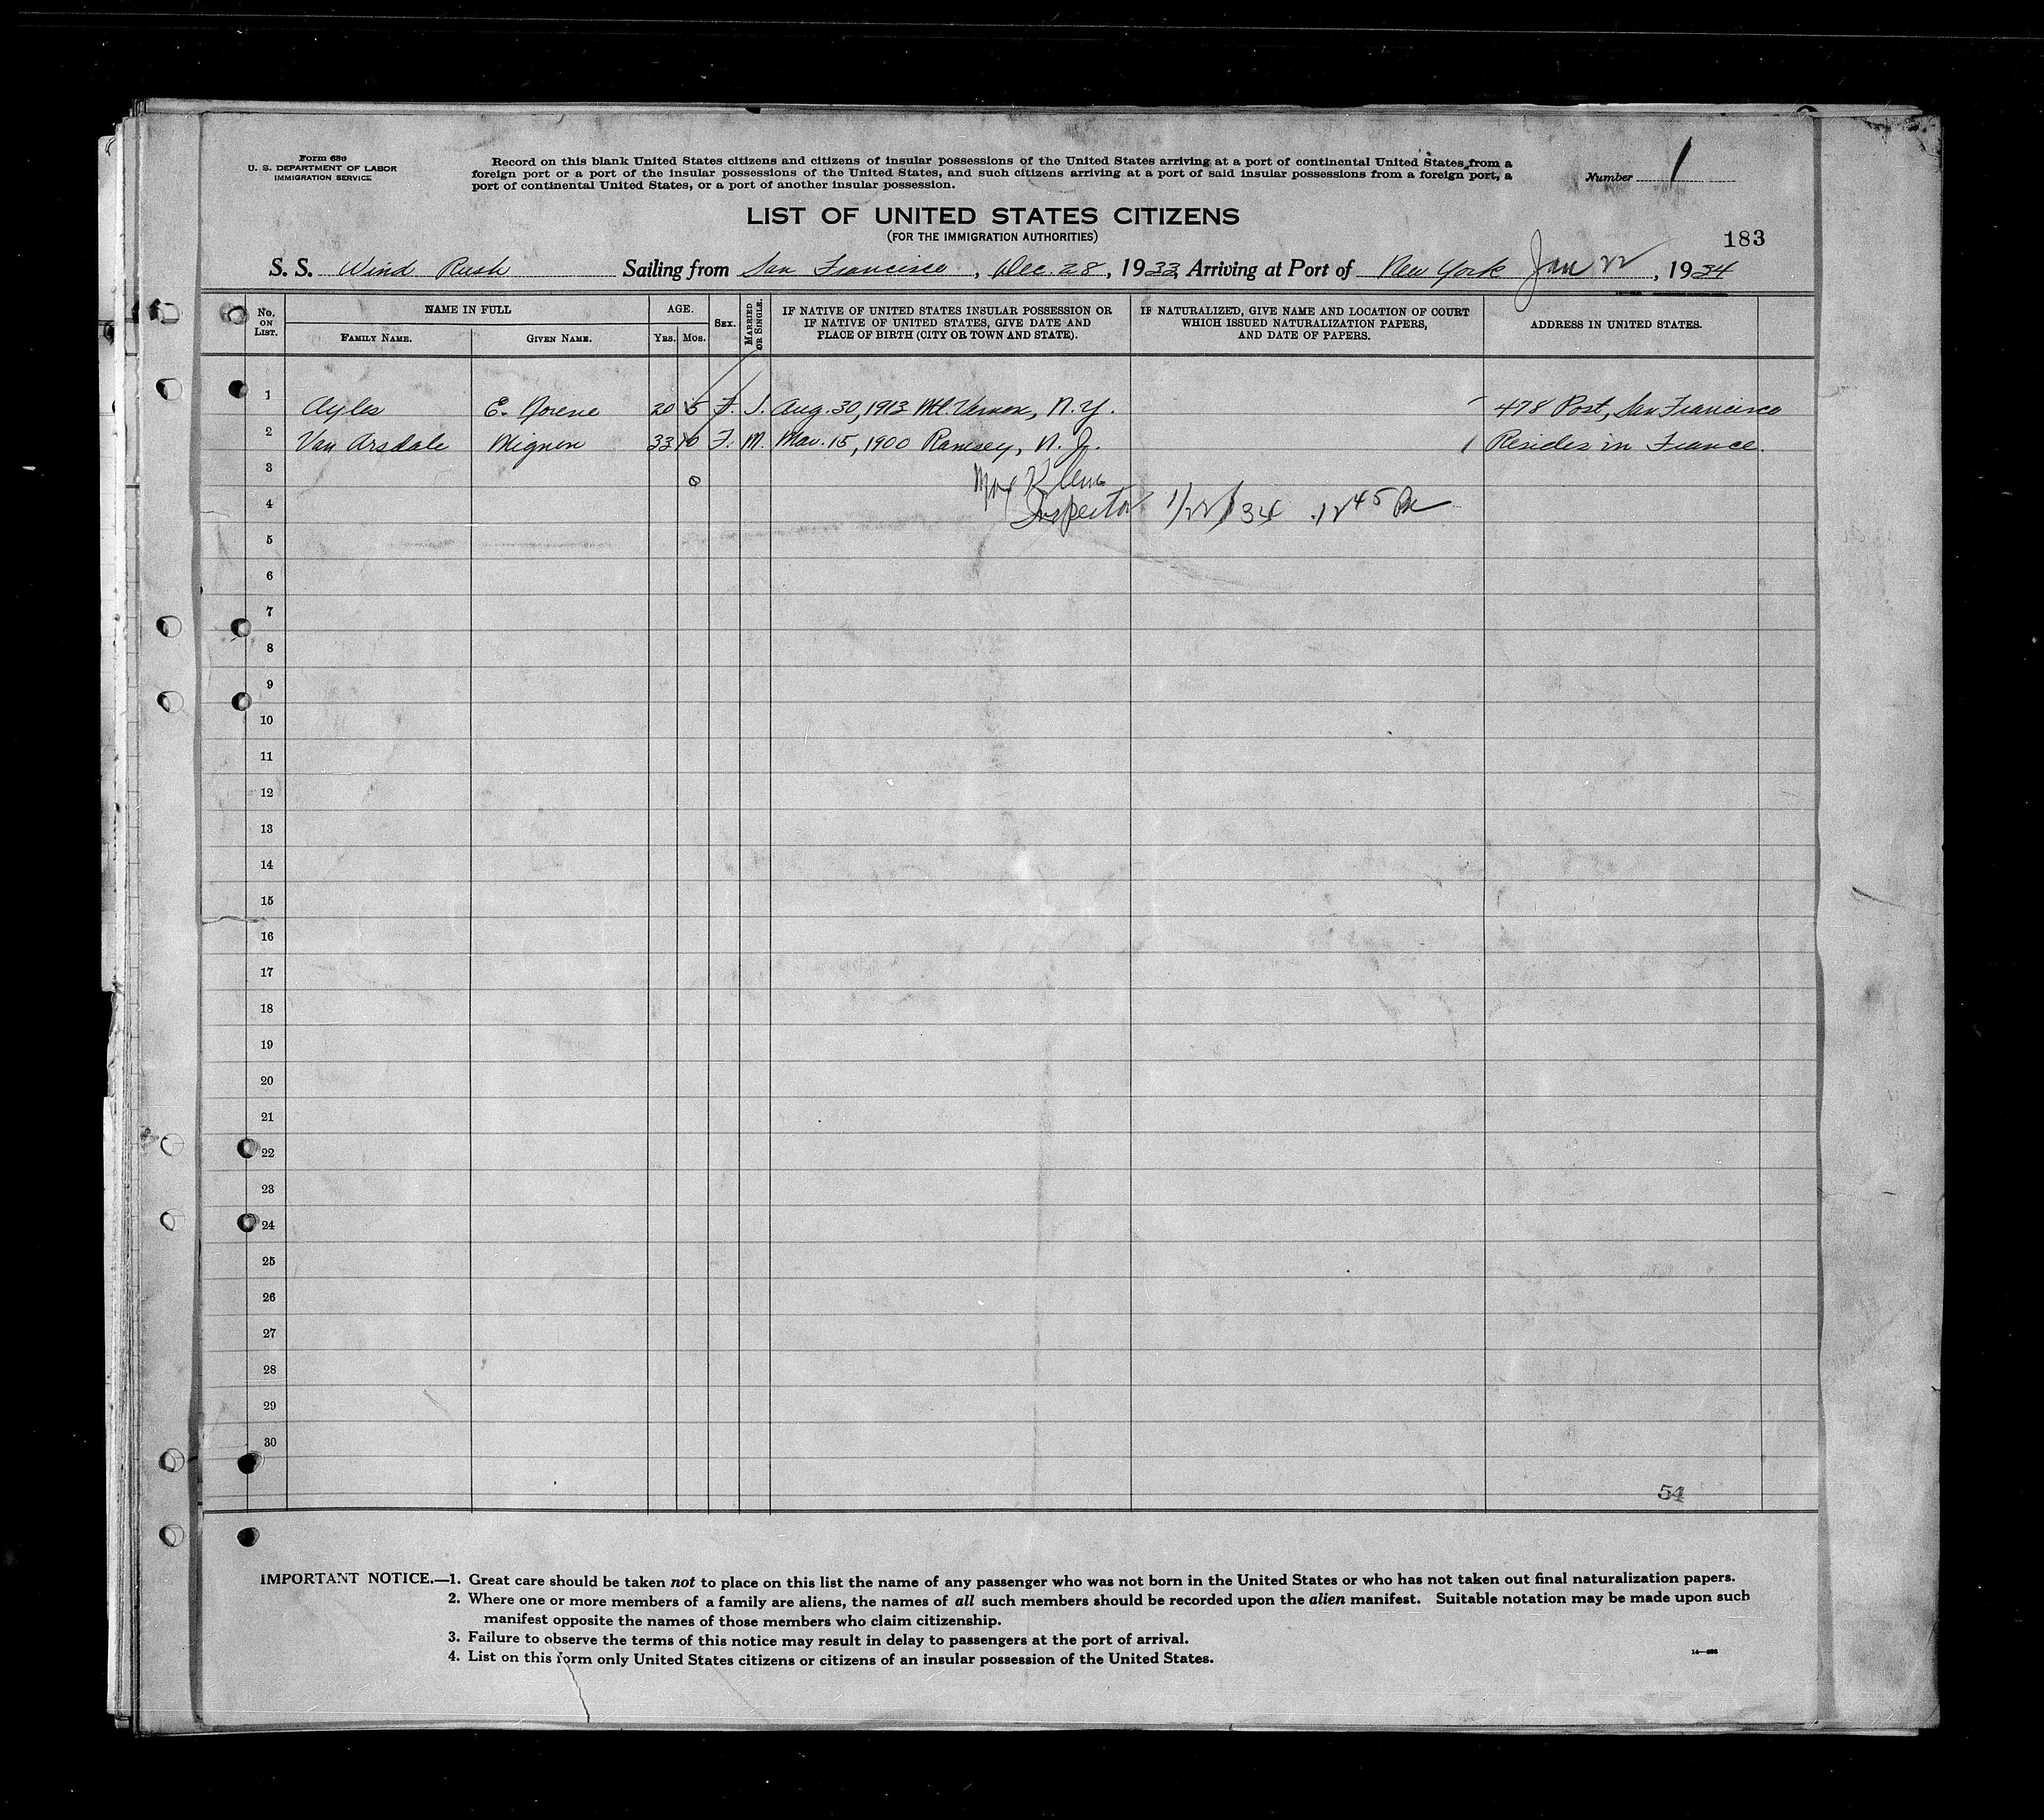 Form 630
U. S. DEPARTMENT OF LABOR
IMMIGRATION SERVICE
Record on this blank United States citizens and citizens of insular possessions of the United States arriving at a port of continental United States from a
foreign port or a port of the insular possessions of the United States, and such citizens arriving at a port of said insular possessions from a foreign port, a
port of continental United States, or a port of another insular possession.
Number 1
LIST OF UNITED STATES CITIZENS
(FOR THE IMMIGRATION AUTHORITIES)
183
S. S. Wind Rush Sailing from San Francisco, Dec. 28, 1933, Arriving at Port of New York Jan 22, 1934
No. ON LIST. NAME IN FULL AGE. SEX. MARRIED OR SINGLE. IF NATIVE OF UNITED STATES INSULAR POSSESSION OR IF NATIVE OF UNITED STATES, GIVE DATE AND PLACE OF BIRTH (CITY OR TOWN AND STATE). IF NATURALIZED, GIVE NAME AND LOCATION OF COURT WHICH ISSUED NATURALIZATION PAPERS, AND DATE OF PAPERS. ADDRESS IN UNITED STATES.
FAMILY NAME. GIVEN NAME. YRS. MOS.
1 Ayles E. Norene 20 5 F. S. Aug. 30, 1913 Mt. Vernon, N.Y. 478 Post, San Francisco
2 Van Arsdale Mignon 33 10 F. M. Mar. 15, 1900 Ramsey, N. J. Resides in France.
3 Max
4 Inspector 1/22/34 12 45 Pm
5
6
7
8
9
10
11
12
13
14
15
16
17
18
19
20
21
22
23
24
25
26
27
28
29
30
54
IMPORTANT NOTICE.—1. Great care should be taken not to place on this list the name of any passenger who was not born in the United States or who has not taken out final naturalization papers.
2. Where one or more members of a family are aliens, the names of all such members should be recorded upon the alien manifest. Suitable notation may be made upon such
manifest opposite the names of those members who claim citizenship.
3. Failure to observe the terms of this notice may result in delay to passengers at the port of arrival.
4. List on this form only United States citizens or citizens of an insular possession of the United States.